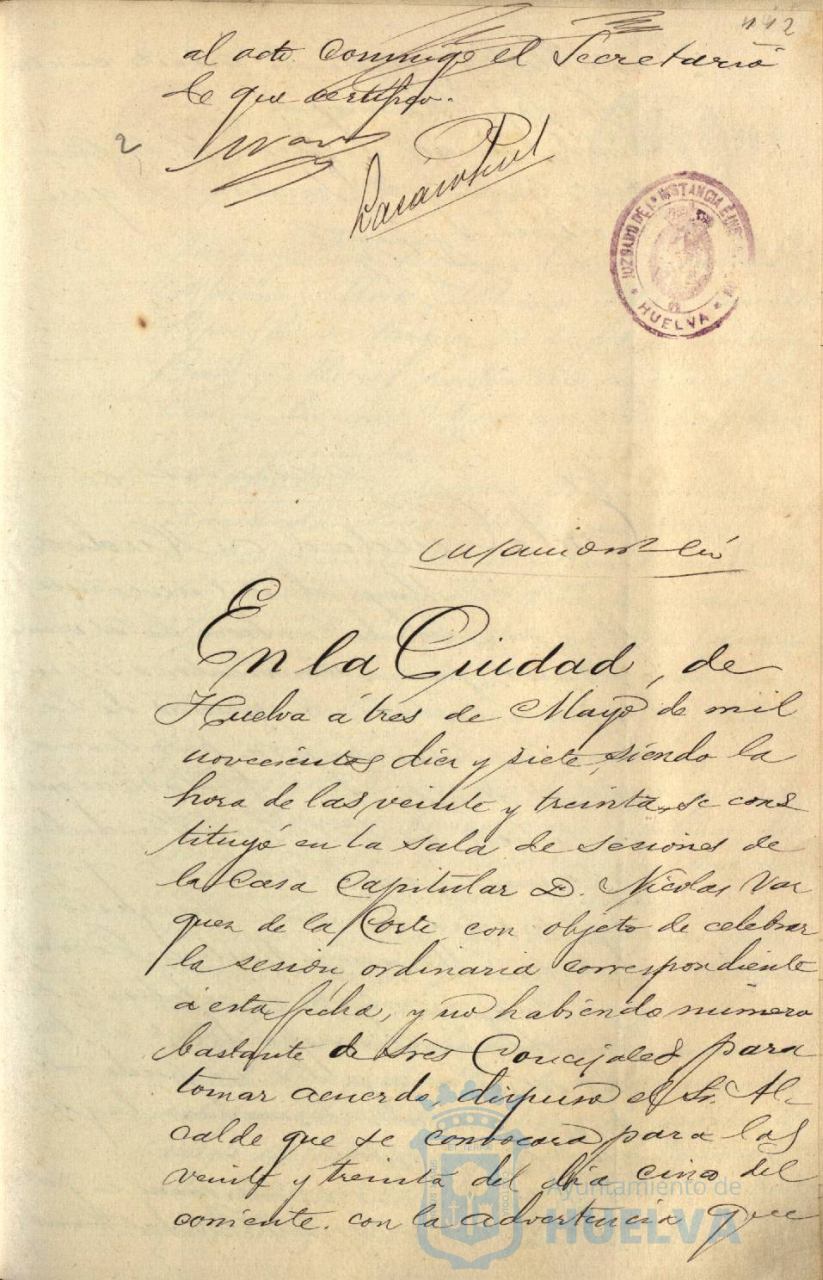 112
al acto conmigo el Secretario
de que certifico.
2
JUZGADO DE 1ª INSTANCIA É INS
HUELVA
En la Ciudad, de
Huelva á tres de Mayo de mil
novecientos diez y siete, siendo la
hora de las veinte y treinta, se cons
tituyó en la sala de sesiones de
la Casa Capitular D. Nicolas Vaz
quez de la Corte con objeto de celebrar
la sesión, ordinaria correspondiente
á esta fecha, y no habiendo número
bastante de Sres Concejales para
tomar acuerdo, dispuso el Sr. Al-
calde que se convocara para las
veinte y treinta del dia cinco del
corriente. con la advertencia que
Ayuntamiento de
HUELVA